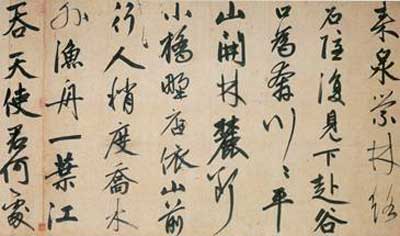 來泉縈林絡
石隱復見下赴谷
口為奔川〻平
山開林麓斷
小橋野店依山前
行人稍度喬木
外漁舟一葉江
吞天使君何處